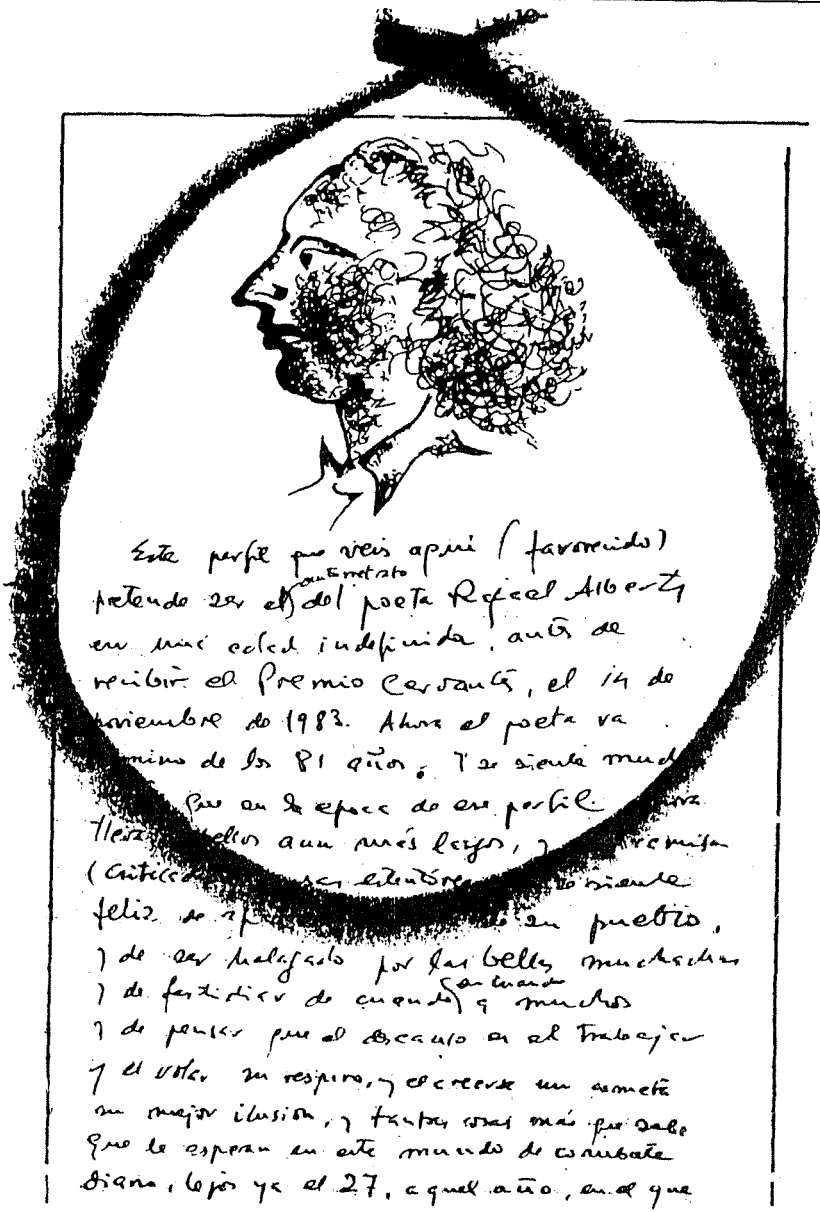 Este perfil que veis aquí (favorecido)
autorretrato
pretende ser el del poeta Rafael Alberti
en una edad indefinida, antes de
recibir el Premio Cervantes, el 14 de
noviembre de 1983. Ahora el poeta va
camino de los 81 años. Y se siente
que en la época de ese perfil.
aun más largos, y
(
feliz de su pueblo,
y de ser halagado por las bellas muchachas
en cuando
y de fastidiar de cuando a muchos
y de pensar que el descanso es el trabajar
y el volar su respiro, y el creerse un cometa
su mejor ilusión, y tantas cosas más que sabe
que le esperan en este mundo de combate
diario, lejos ya el 27, aquel año, en el que